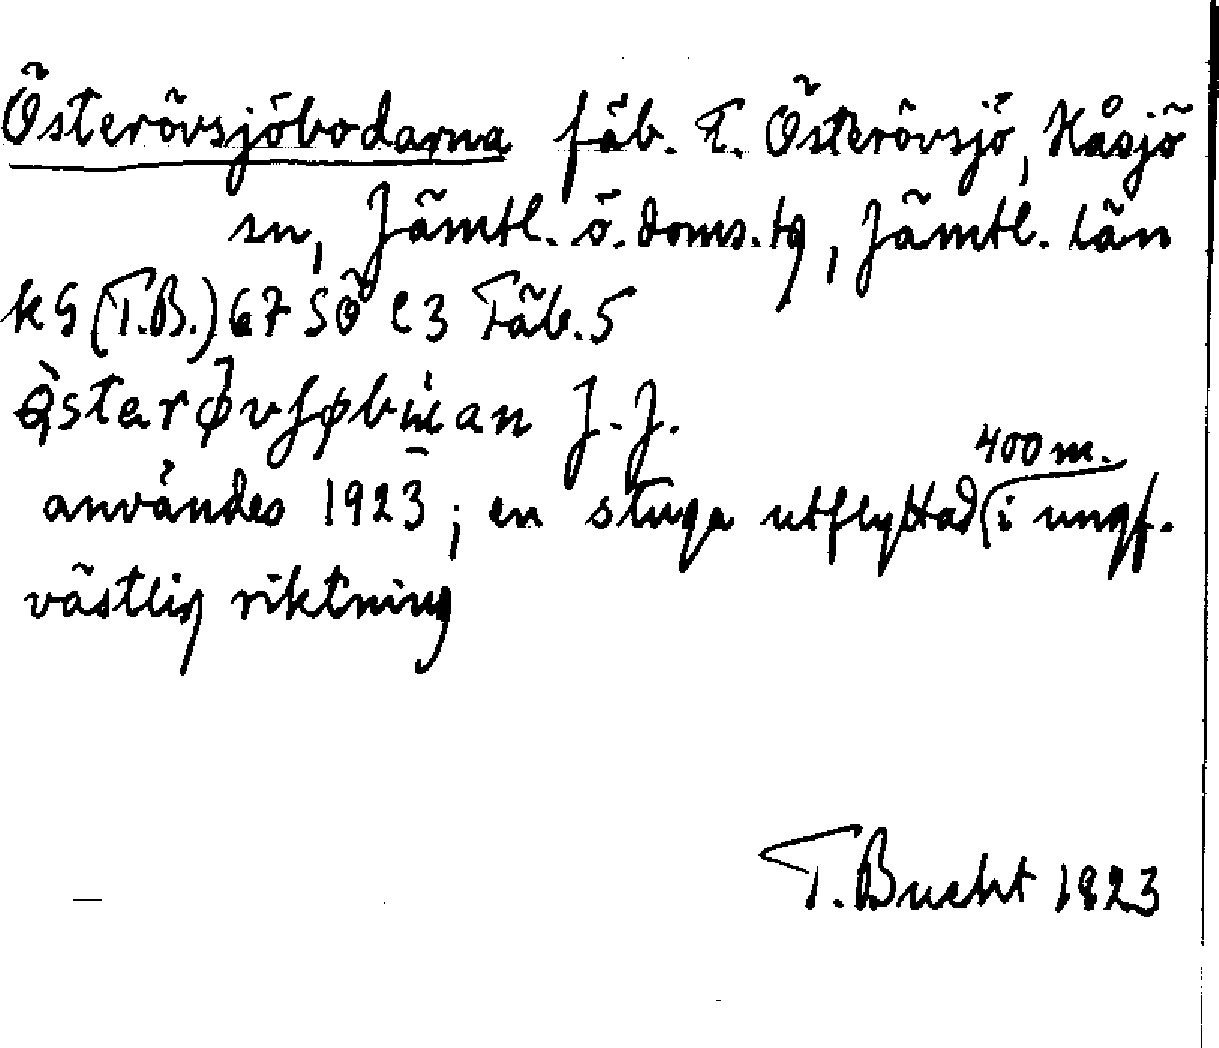 Österövsjöbodarna fäb. t. Österövsjö, Håsjö
sn, Jämtl. ö. doms. tg, Jämtl. län
k G (T.B.) 67 SÖ c 3 Fäb. 5
J. J.
400 m.
användes 1923; en stuga utflyttad i ungf.
västlig riktning
T. Bucht 1923